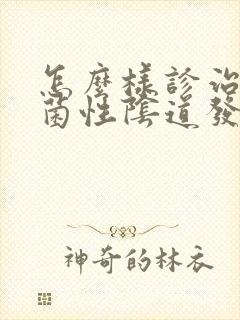 怎麼樣診治
菌性陰道發
神奇的林衣